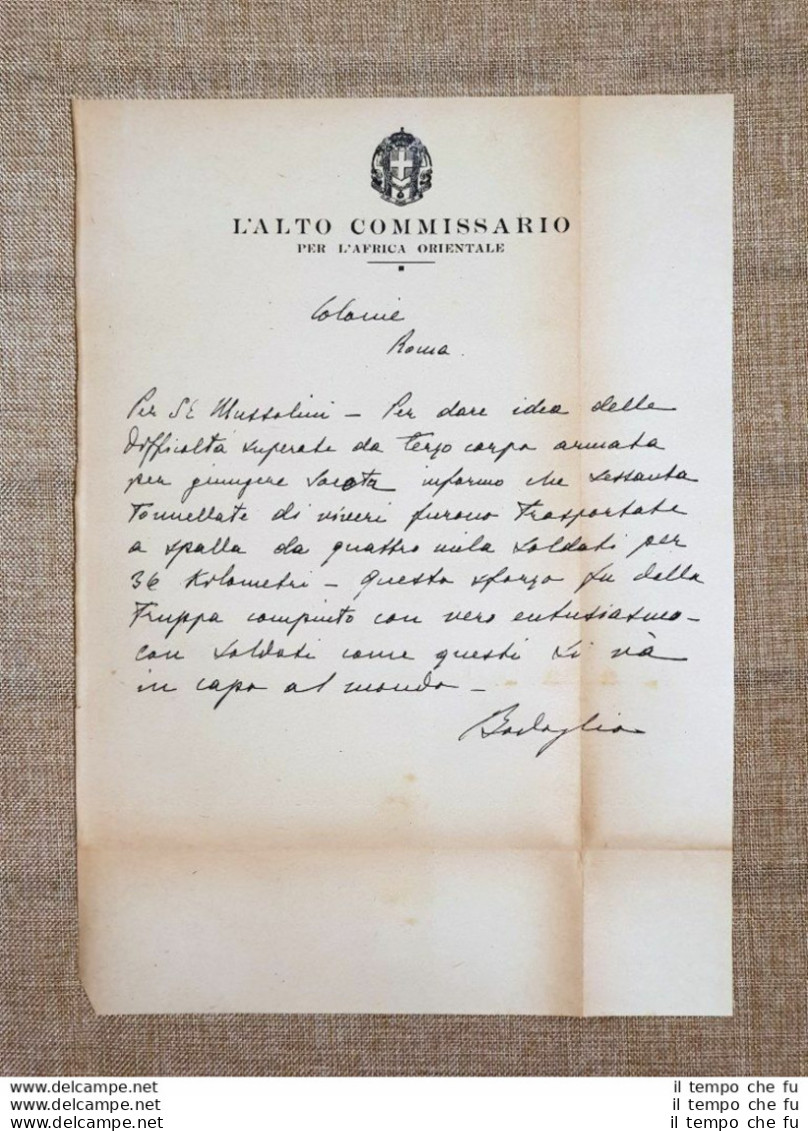 L'ALTO COMMISSARIO
PER L'AFRICA ORIENTALE
Colonie
Roma
Per SE Mussolini – Per dare idea delle
difficoltà superate da terzo corpo armata
per giungere Socota informo che sessanta
tonnellate di viveri furono trasportate
a spalla da quattro mila soldati per
36 Kilometri – Questo sforzo fu dalla
truppa compiuto con vero entusiasmo –
con soldati come questi si và
in capo al mondo –
Badoglio
www.delcampe.net
www.delcampe.net
www.delcampe.net
il tempo che fu
il tempo che fu
il tempo che fu